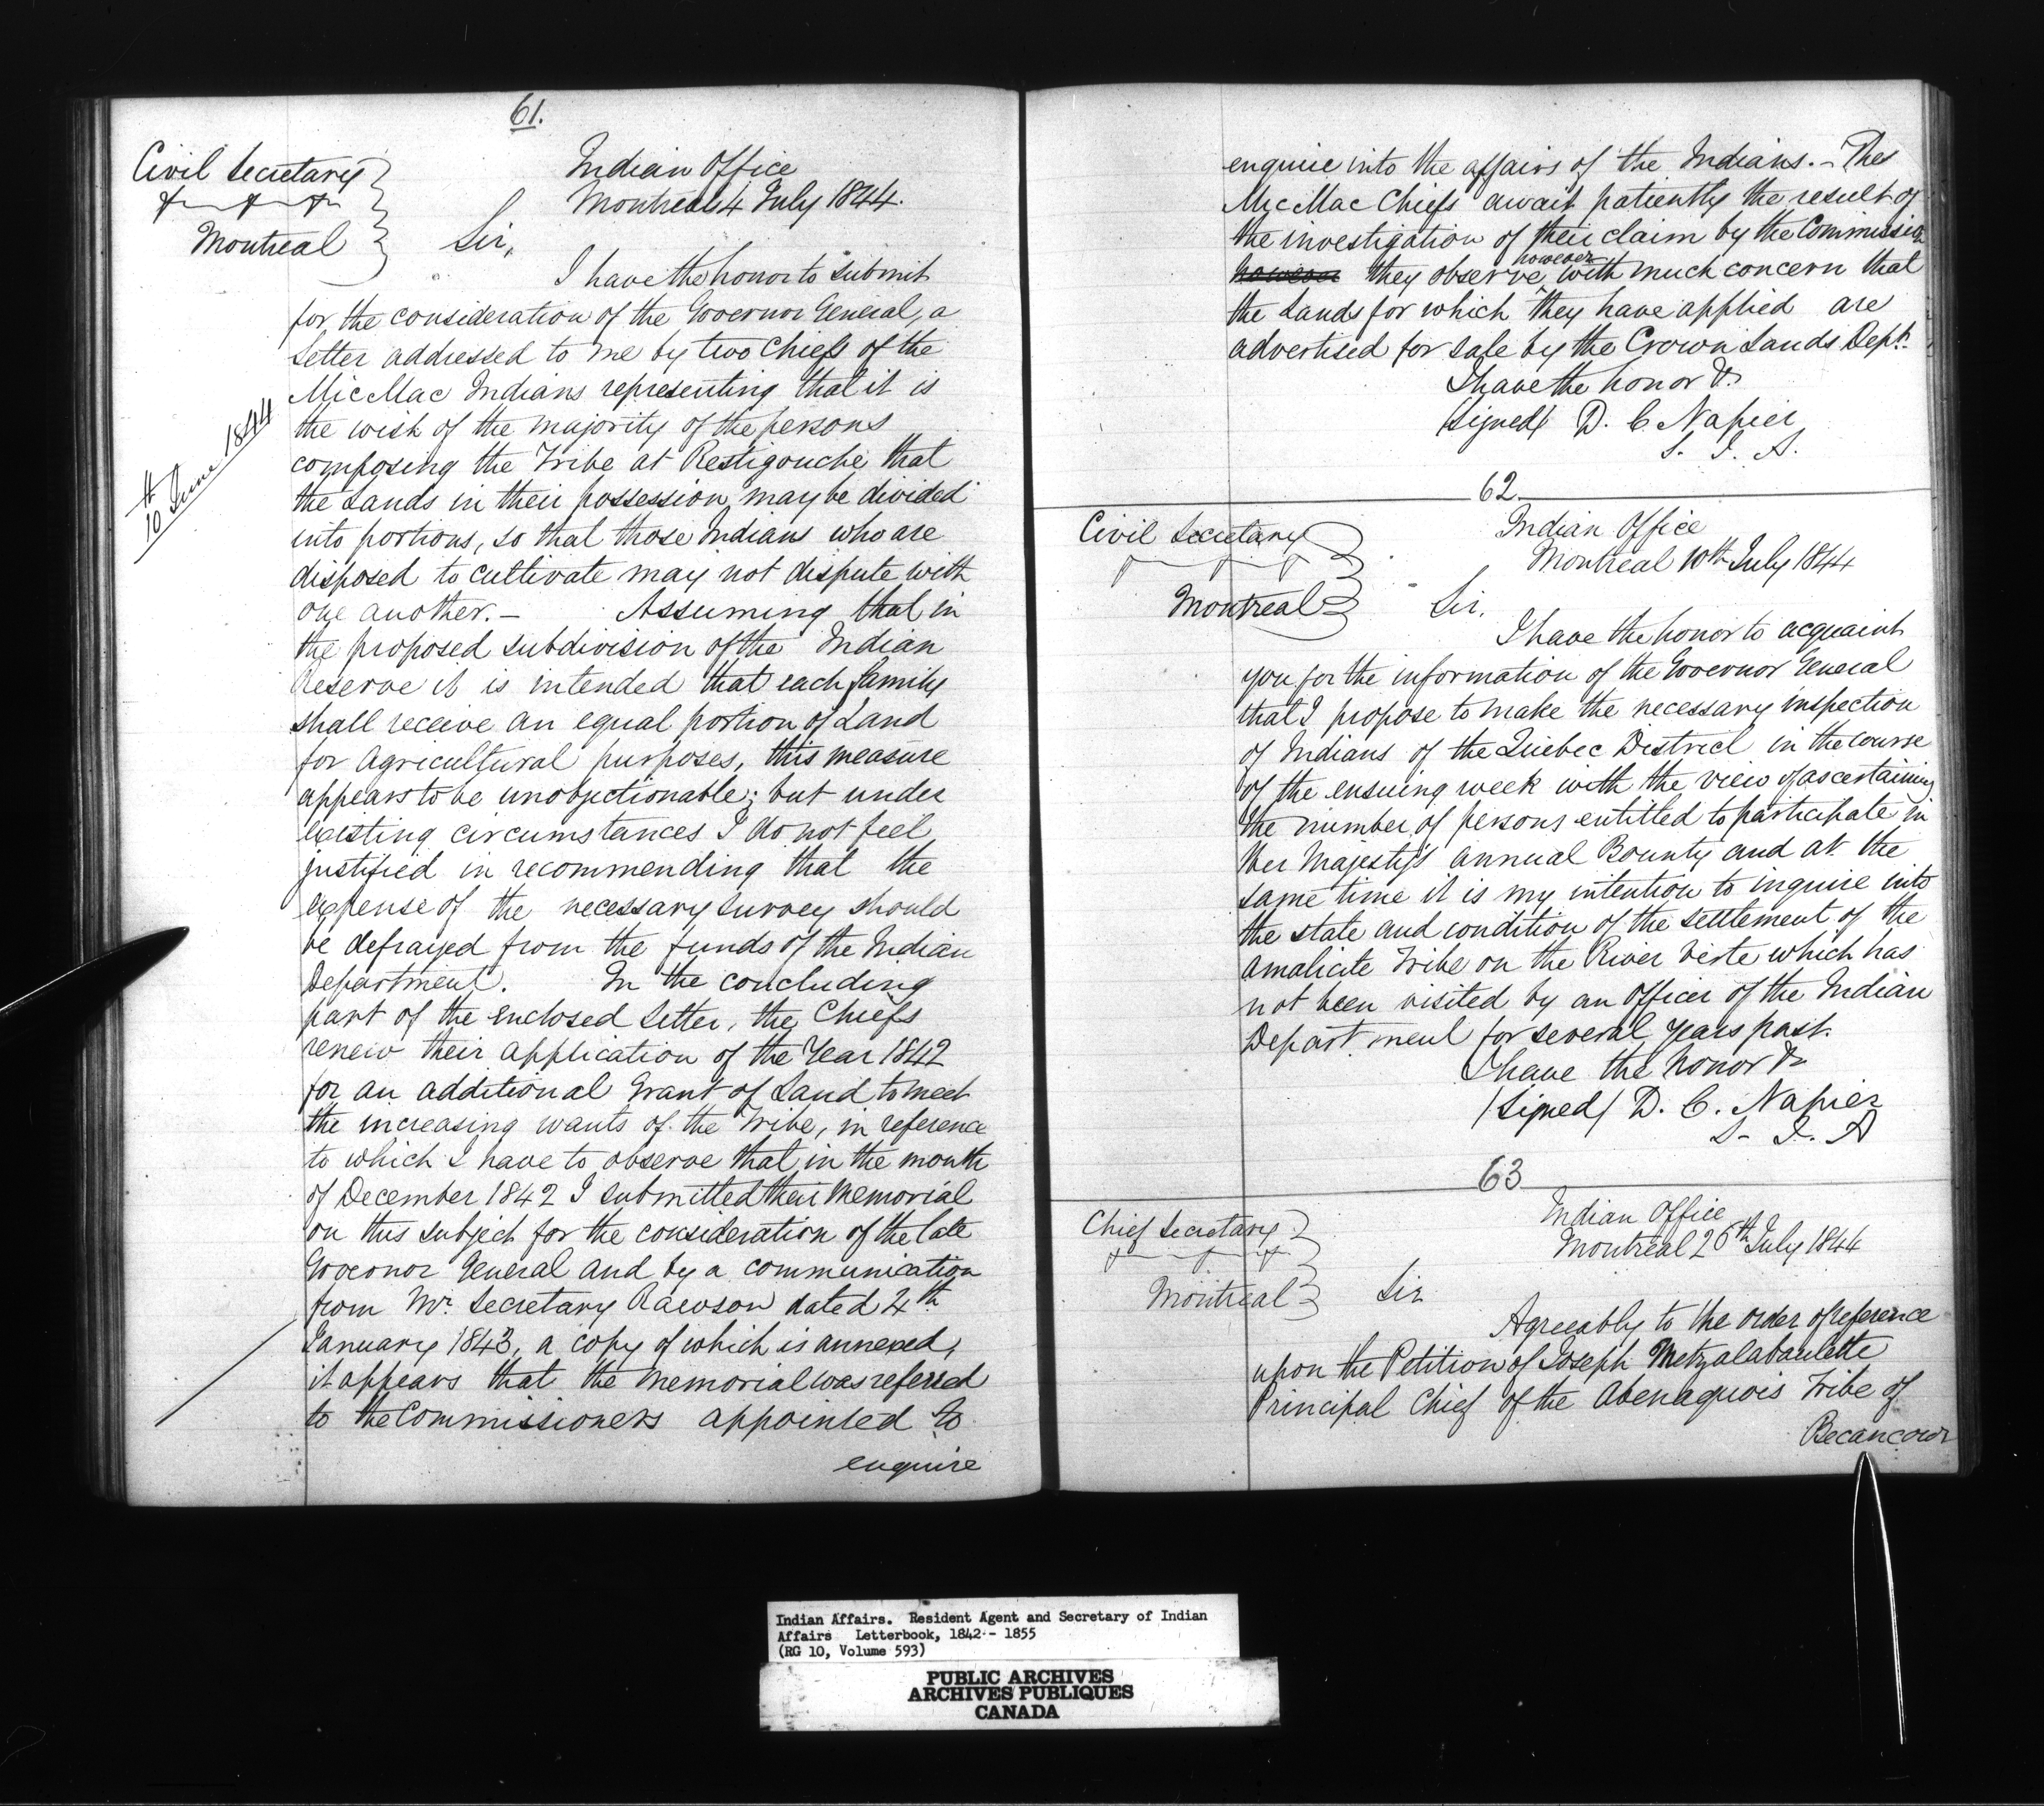 61.
Civil Secretary
&c &c &c
Montreal
Indian Office
Montreal 4 July 1844.
Sir,
I have the honor to submit
for the consideration of the Governor General, a
Letter addressed to me by two Chiefs of the
MicMac Indians representing that it is
the wish of the majority of the persons
composing the Tribe at Restigouche that
the Lands in their possession may be divided
into portions, so that those Indians who are
disposed to cultivate may not dispute with
one another. – Assuming that in
the proposed subdivision of the Indian
Reserve it is intended that each family
shall receive an equal portion of Land
for Agricultural purposes, this measure
appears to be unobjectionable; but under
existing circumstances I do not feel
justified in recommending that the
expense of the necessary Survey should
be defrayed from the funds of the Indian
Department. In the concluding
part of the enclosed Letter, the Chiefs
renew their application of the Year 1842
for an additional Grant of Land to meet
the increasing wants of the Tribe, in reference
to which I have to observe that in the month
of December 1842 I submitted their Memorial
on this subject for the consideration of the late
Governor General and by a communication
from Mr. Secretary Rawson dated 4th
January 1843, a copy of which is annexed,
it appears that the Memorial was referred
to the Commissioners appointed to
enquire
10th June 1844
enquire into the affairs of the Indians. – The
MicMac Chiefs await patiently the result of
the investigation of their claim by the Commission
however they observe however with much concern that
the Lands for which they have applied are
advertised for sale by the Crown Lands Dept.
I have the honor &c
(Signed) D. C. Napier
S. I. A.
62
Civil Secretary
Montreal
Indian Office
Montreal 10th July 1844
Sir,
I have the honor to acquaint
you for the information of the Governor General
that I propose to make the necessary inspection
of Indians of the Quebec District in the course
of the ensuing week with the view of ascertaining
the number of persons entitled to participate in
Her Majesty's Annual Bounty and at the
same time it is my intention to inquire into
the state and condition of the settlement of the
Amalicite Tribe on the River Verte which has
not been visited by an Officer of the Indian
Department for several Years past.
I have the honor &c
(Signed) D. C. Napier
S. I. A
63
Chief Secretary
Montreal
Indian Office
Montreal 26th July 1844
Sir
Agreeably to the order of reference
upon the Petition of Joseph Metzalabaulette
Principal Chief of the Abenaquois Tribe of
Becancour
Indian Affairs. Resident Agent and Secretary of Indian
Affairs Letterbook, 1842 - 1855
(RG 10, Volume 593)
PUBLIC ARCHIVES
ARCHIVES PUBLIQUES
CANADA